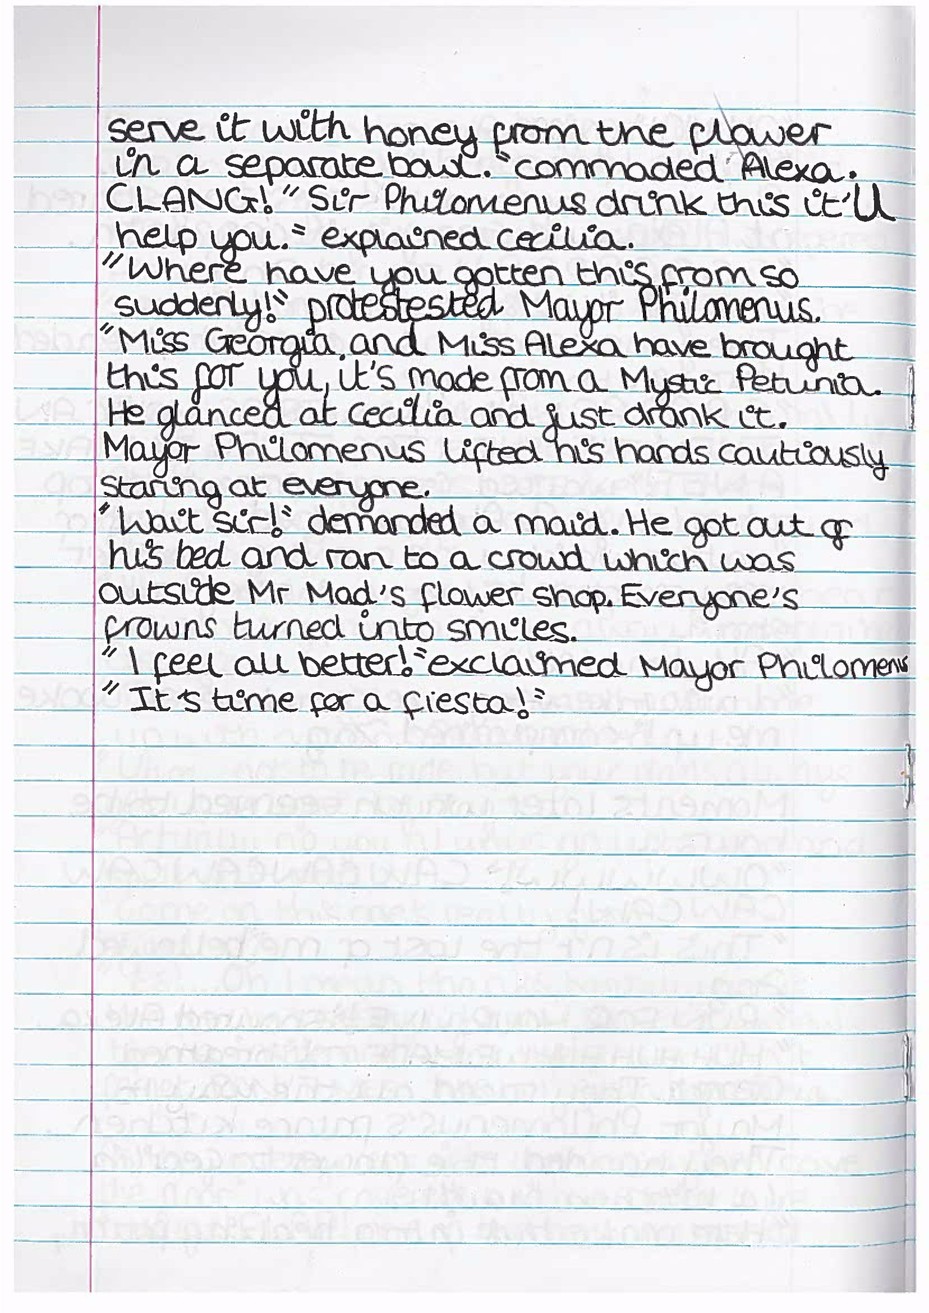 serve it with honey from the flower
in a separate bowl." commaded Alexa.
CLANG!" Sir Philomenus drink this it'll
help you." explained cecilia.
"Where have you gotten this from so
suddenly!" protestested Mayor Philomenus.
"Miss Georgia, and Miss Alexa have brought
this for you, it's made from a Mystic Petunia.
He glanced at cecilia and just drank it.
Mayor Philomenus lifted his hands cautiously
staring at everyone.
"Wait sir!" demanded a maid. He got out of
his bed and ran to a crowd which was
outside Mr Mad's flower shop. Everyone's
frowns turned into smiles.
"I feel all better!" exclaimed Mayor Philomenus
"It's time for a fiesta!"